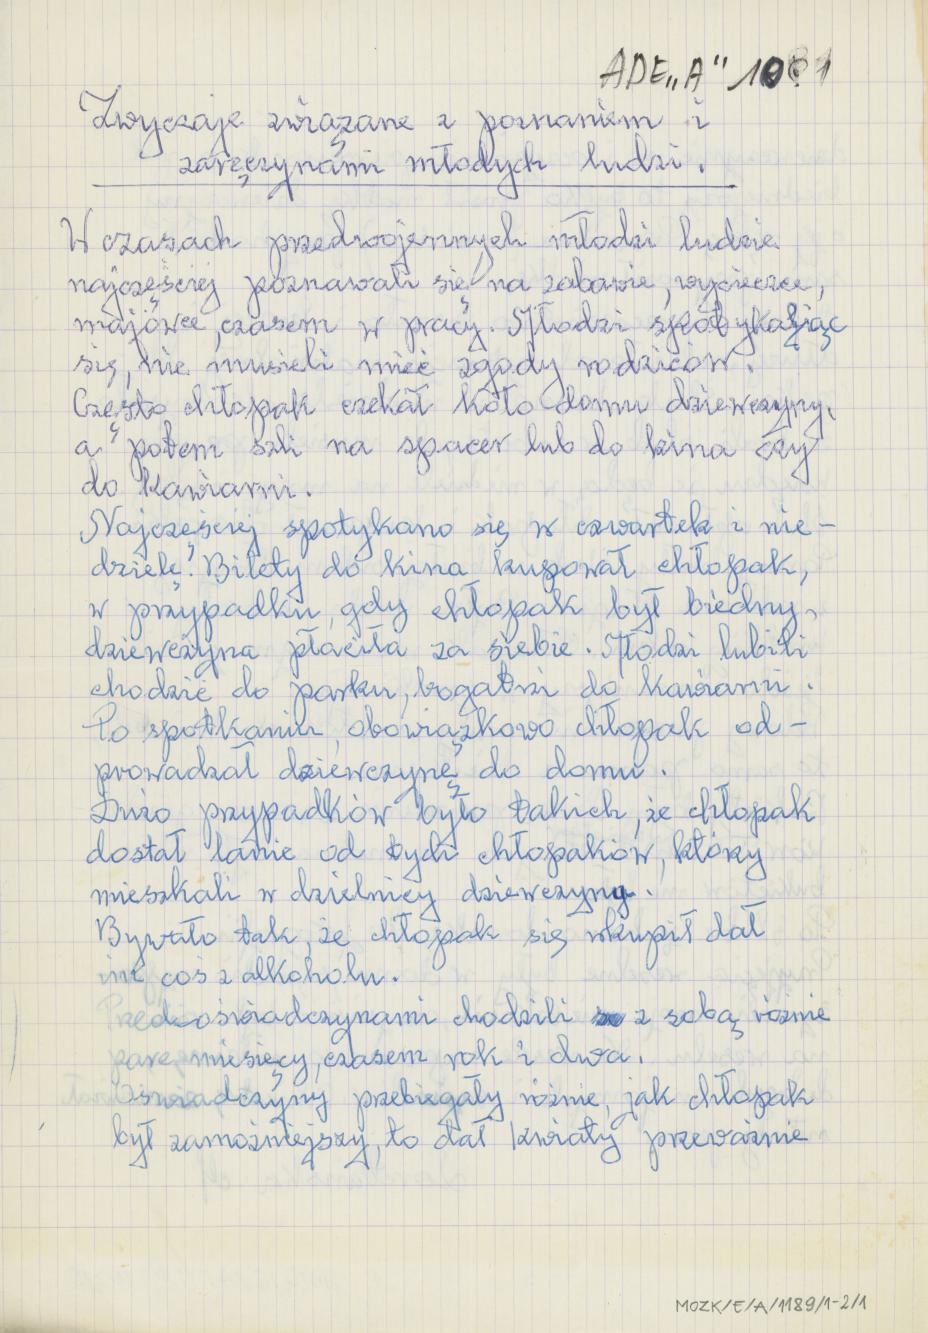 ADE „A" 1081
Zwyczaje związane z poznaniem i
zaręczynami młodych ludzi.
W czasach przedwojennych młodzi ludzie
najczęściej poznawali się na zabawie, wycieczce,
majówce, czasem w pracy. Młodzi spotykając
się, nie musieli mieć zgody rodziców.
Często chłopak czekał koło domu dziewczyny,
a potem szli na spacer lub do kina czy
do kawiarni.
Najczęściej spotykano się w czwartek i nie-
dzielę. Bilety do kina kupował chłopak,
w przypadku, gdy chłopak był biedny,
dziewczyna płaciła za siebie. Młodzi lubili
chodzić do parku, bogatsi do kawiarni.
Po spotkaniu, obowiązkowo chłopak od-
prowadzał dziewczynę do domu.
Dużo przypadków było takich, że chłopak
dostał lanie od tych chłopaków, którzy
mieszkali w dzielnicy dziewczyny.
Bywało tak, że chłopak się wkupił dał
im coś z alkoholu.
Przed oświadczynami chodzili z sobą różnie
parę miesięcy, czasem rok i dwa.
Oświadczyny przebiegały różnie, jak chłopak
był zamożniejszy, to dał kwiaty przeważnie
MOZK/E/A/1189/1-2/1